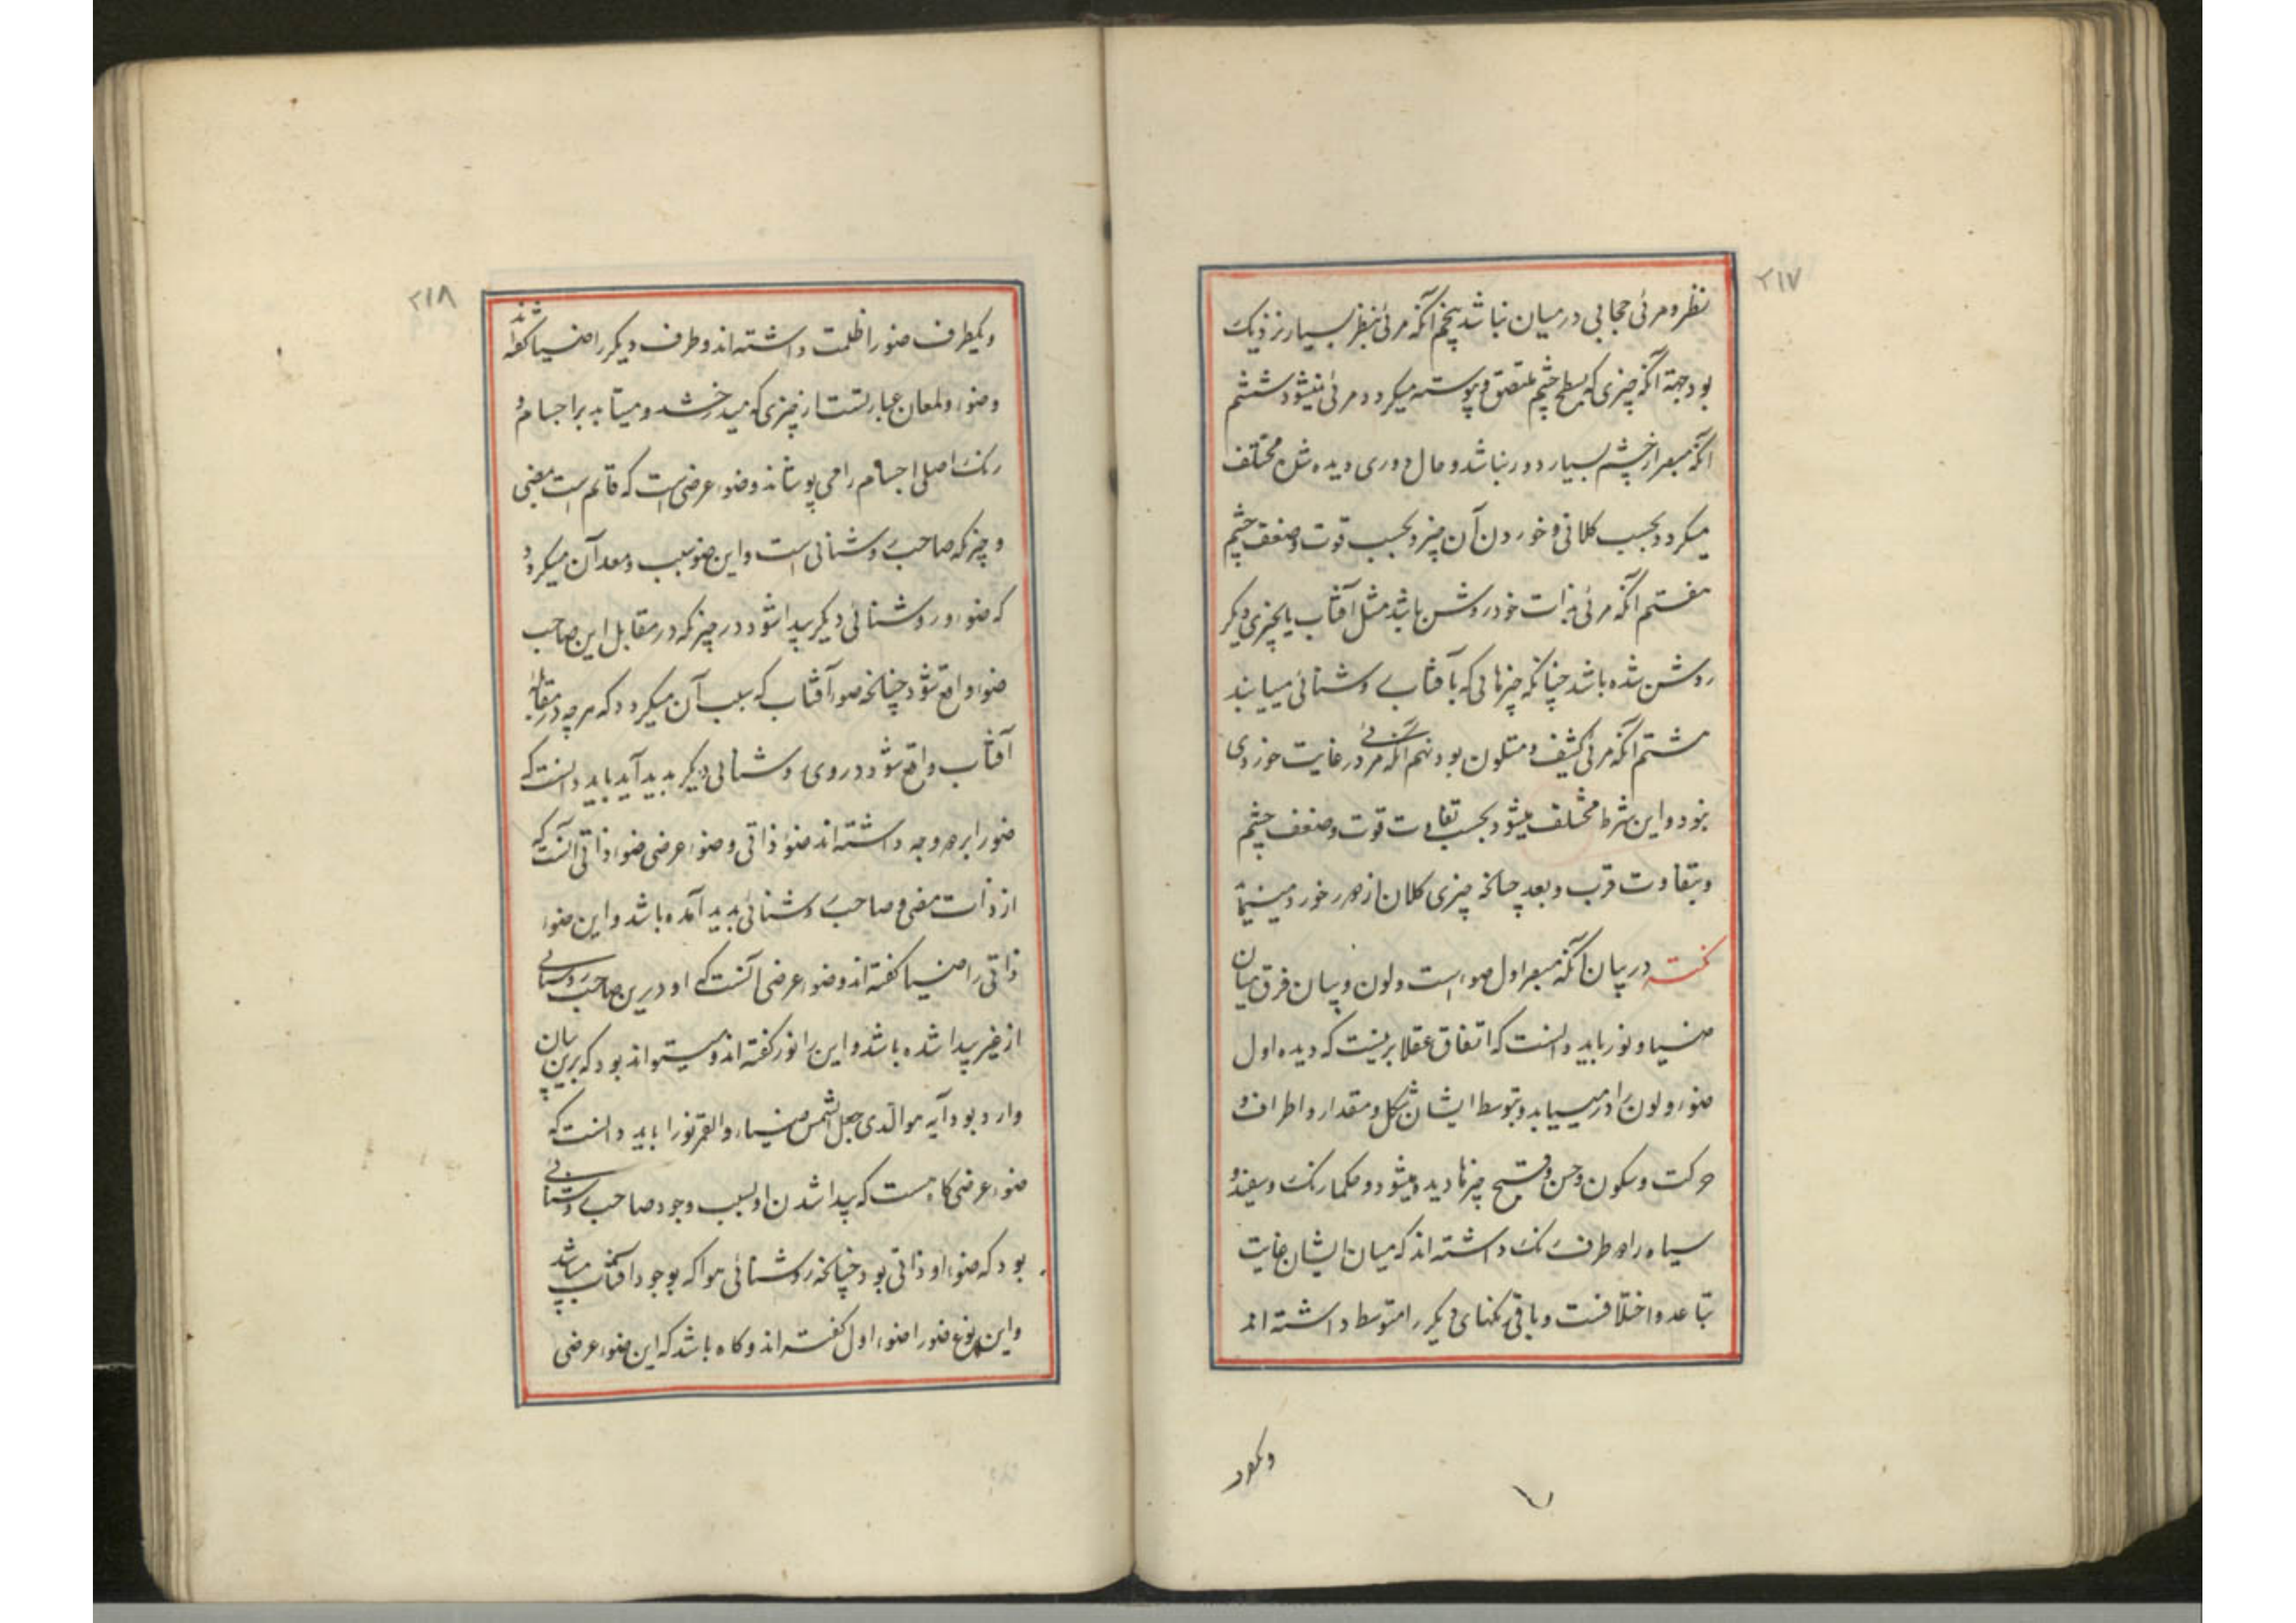 ۲۱۷
نظر و مرئی حجابی در میان نباشد پنجم آنکه مرئی بنظر بسیار نزدیک
بود جهة آنکه چیزی که بسطح چشم ملتصق و پیوسته میکردد مرئی نمیشود ششم
آنکه مبصر از چشم بسیار دور نباشد و حال دوری دیده شدن مختلف
میکردد بحسب کلانی و خوردن آن چیز و بحسب قوت و ضعف چشم
هفتم آنکه مرئی بذات خود روشن باشد مثل آفتاب یا بچیزی دیکر
روشن شده باشد چنانکه چیزهائی که بآفتاب روشنائی مییابند
هشتم آنکه مرئی کثیف و متلون بود نهم آنکه مرئی در غایت خوردی
نبود و این شرط مختلف میشود بحسب تفاوت قوت و ضعف چشم
و بتفاوت قرب و بعد چنانچه چیزی کلان از دور خورد مینماید
در بیان آنکه مبصر اول ضوء است و لون و بیان فرق میان
ضیا و نور باید دانست که اتفاق عقلا برینست که دیده اول
ضوء و لون را در مییابد و بتوسط ایشان شکل و مقدار و اطراف و
حرکت و سکون و حسن و قبح چیزها دیده میشود و حکما رنک سفید و
سیاه را دو طرف رنک داشته اند که میان ایشان غایت
تباعد و اختلافست و باقی رنکهای دیکر را متوسط داشته اند
۲۱۸
و یکطرف ضور اظلمت داشته اند و طرف دیکر را ضیا کفته اند
و ضوء و لمعان عبارتست از چیزی که میدرخشد و میتابد بر اجسام و
رنک اصلی اجسام را می پوشاند و ضوء عرضی است که قائم است بمضی
و چیز که صاحب روشنائی است و این ضو سبب و معد آن میکردد
که ضوء و روشنائی دیکر پیدا شود در چیز که در مقابل این صاحب
ضوء واقع شود چنانچه ضور آفتاب که سبب آن میکردد که هر چه در مقابله
آفتاب واقع شود در وی روشنائی دیکر پدید آید باید دانست که
ضور ابر دو وجه داشته اند ضوء ذاتی و ضوء عرضی ضوء ذاتی آنست که
از ذات مضی و صاحب روشنائی پدید آمده باشد و این ضوء
ذاتی را ضیا کفته اند و ضوء عرضی آنست که او درین صاحب روشنائی
از غیر پیدا شده باشد و این را نور کفته اند و میتواند بود که برین بیان
وارد بود آیه هو الذی جعل الشمس ضیاء و القمر نورا باید دانست که
ضوء عرضی کاه هست که پیدا شدن او بسبب وجود صاحب روشنائی
بود که ضوء او ذاتی بود چنانچه روشنائی هوا که بوجود آفتاب میباشد
و این نوع ضور اضوء اول کفته اند و کاه باشد که این ضوء عرضی